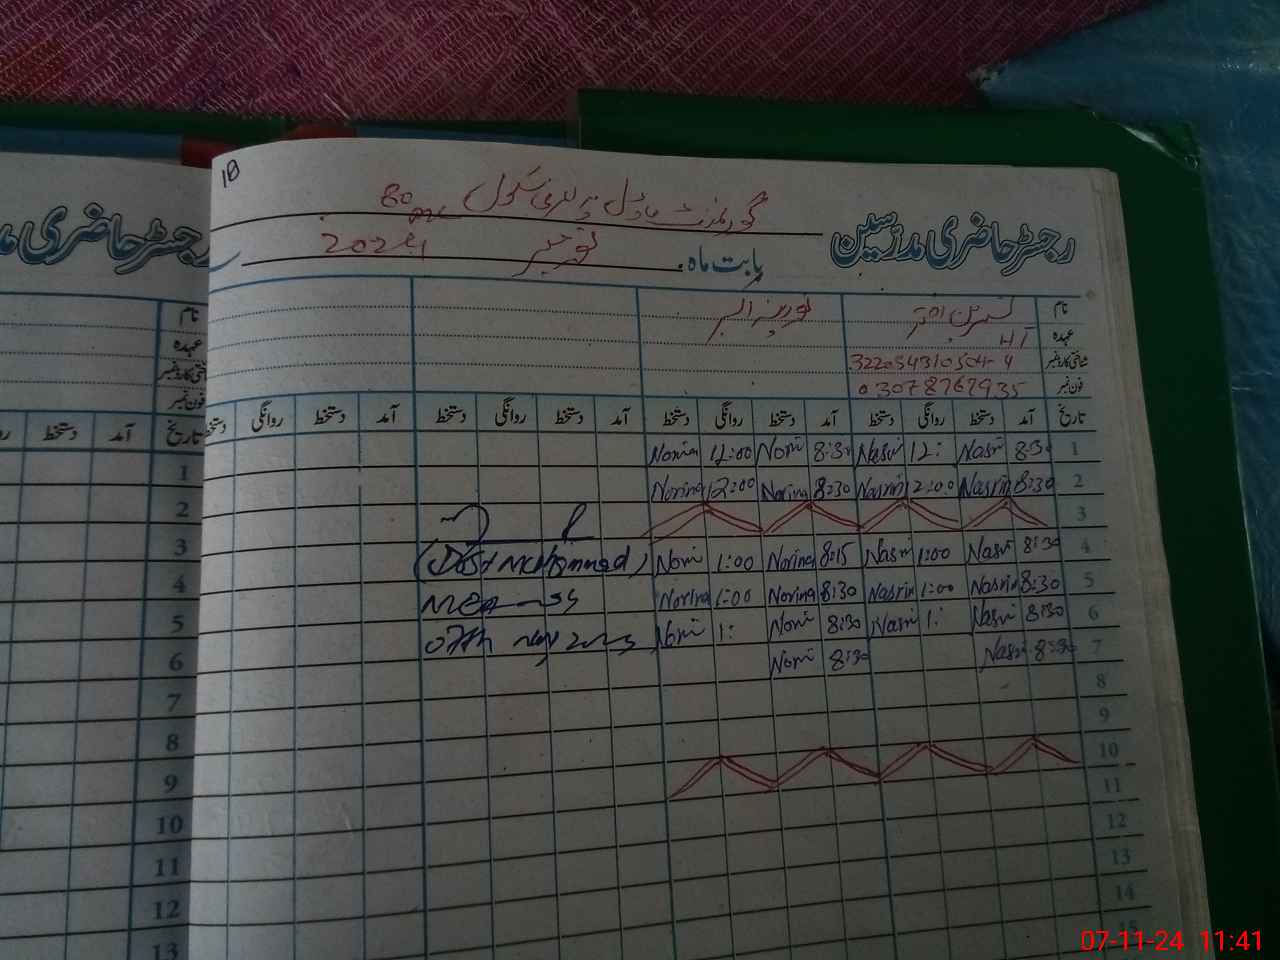 10
گورنمنٹ ماڈل پرائمری سکول 80
رجسٹر حاضری مدرسین
بابت ماہ نومبر 2024
نام نسرین اختر نورینہ اکبر
عہدہ HT
شناختی کارڈ نمبر 322034310504-4
فون نمبر 03078767935
تاریخ آمد دستخط روانگی دستخط آمد دستخط روانگی دستخط آمد دستخط روانگی دستخط آمد دستخط روانگی دستخط
1 8:30 Nasri 12: Nasri 8:30 Nori 12:00 Norina
2 8:30 Nasrin 12:00 Nasrin 8:30 Norina 12:00 Norina
3
4 8:30 Nasri 1:00 Nasri 8:15 Norina 1:00 Nori
(Dost Mohammad)
5 8:30 Nasrin 1:00 Nasrin 8:30 Norina 1:00 Norina
MEA
6 8:30 Nasri 1: Nasri 8:30 Nori 1: Nori
07th
7 8:30 Nasri 8:30 Nori
8
9
10
11
12
13
14
15
رجسٹر حاضری
نام
عہدہ
شناختی کارڈ نمبر
فون نمبر
تاریخ آمد دستخط
1
2
3
4
5
6
7
8
9
10
11
12
13
07-11-24 11:41